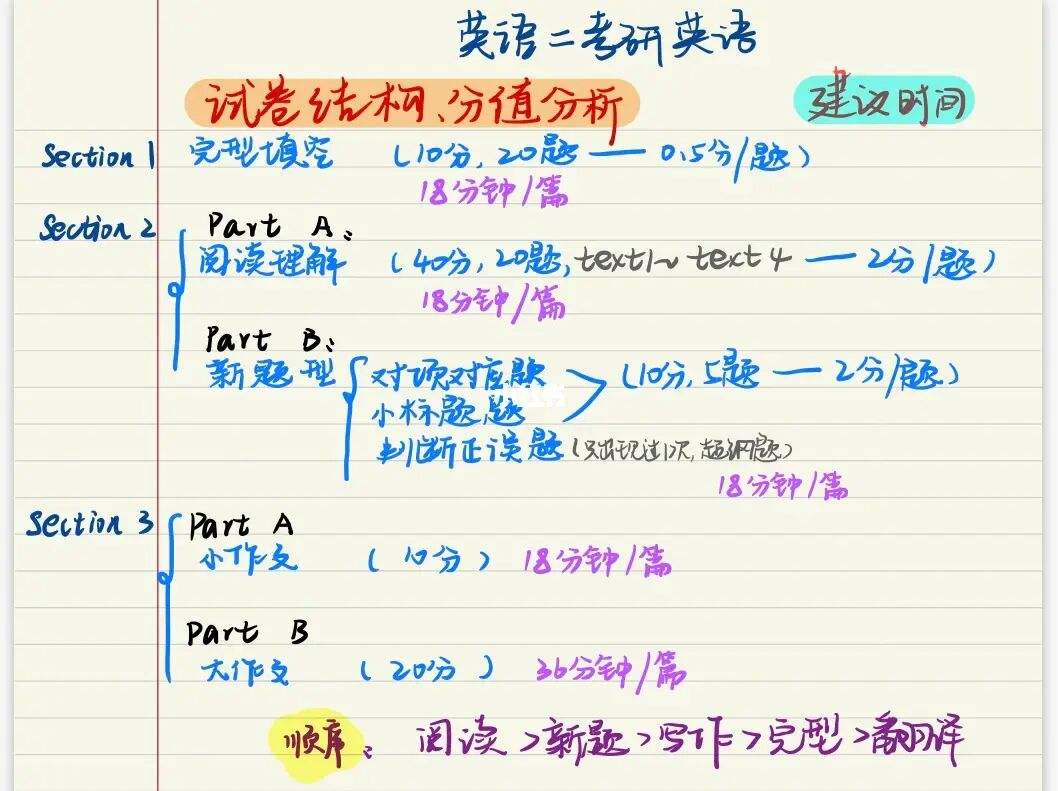 英语二考研英语
试卷结构、分值分析 建议时间
Section 1 完型填空 (10分,20题 — 0.5分/题)
18分钟/篇
Section 2 Part A:
阅读理解 (40分,20题,text1~text4 — 2分/题)
18分钟/篇
Part B:
新题型 多项对应题 (10分,5题 — 2分/题)
小标题题
判断正误题(只出现过1次,超纲题)
18分钟/篇
Section 3 Part A
小作文 (10分) 18分钟/篇
Part B
大作文 (20分) 36分钟/篇
顺序: 阅读>新题>写作>完型>翻译